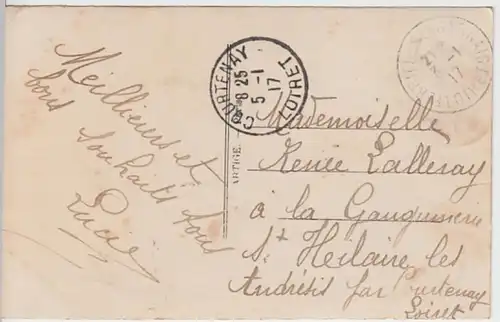 Meillieurs et
bons souhaits pour
Lucie
COURTENAY
8 25
5 - 1
17
LOIRET
21
2 - 1
17
ARTIGE
Mademoiselle
Renée Lalleray
a la Ganguinerie
St Heilaire les
Andrésis par Curtenay
Loiret